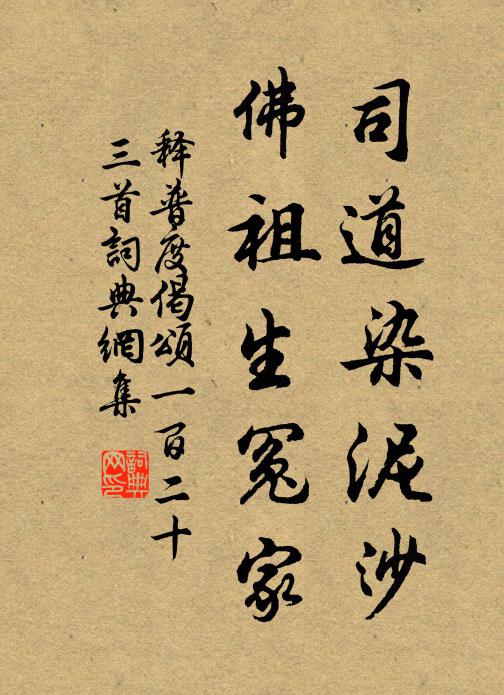 司道染泥沙
佛祖生冤家
释普度偈頌一百二十
三首詞典網集
詞典网印